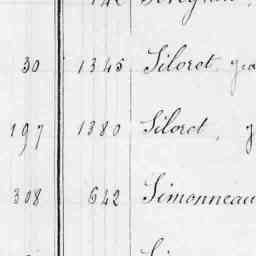 30 1345 Siloret
197 1380 Siloret,
308 642 Simonneau